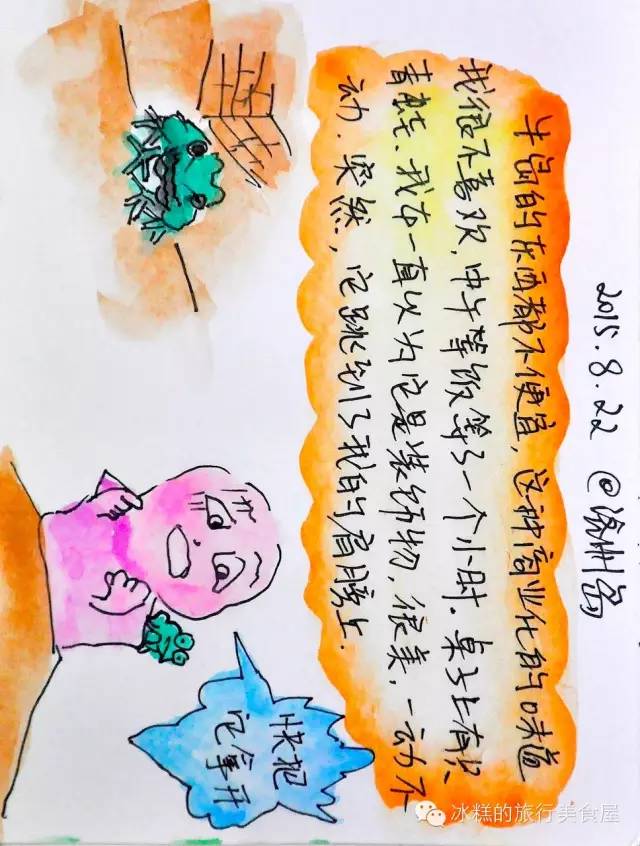 2015.8.22 @州岛
岛的东西都不便宜,这种商业化的味道
我很不喜欢,中午等饭等了一个小时.桌子上有只
青蛙、我在一直以为它是装饰物,很美,一动不
动.突然,它跳到了我的肩膀上.
快把
它拿开
冰糕的旅行美食屋